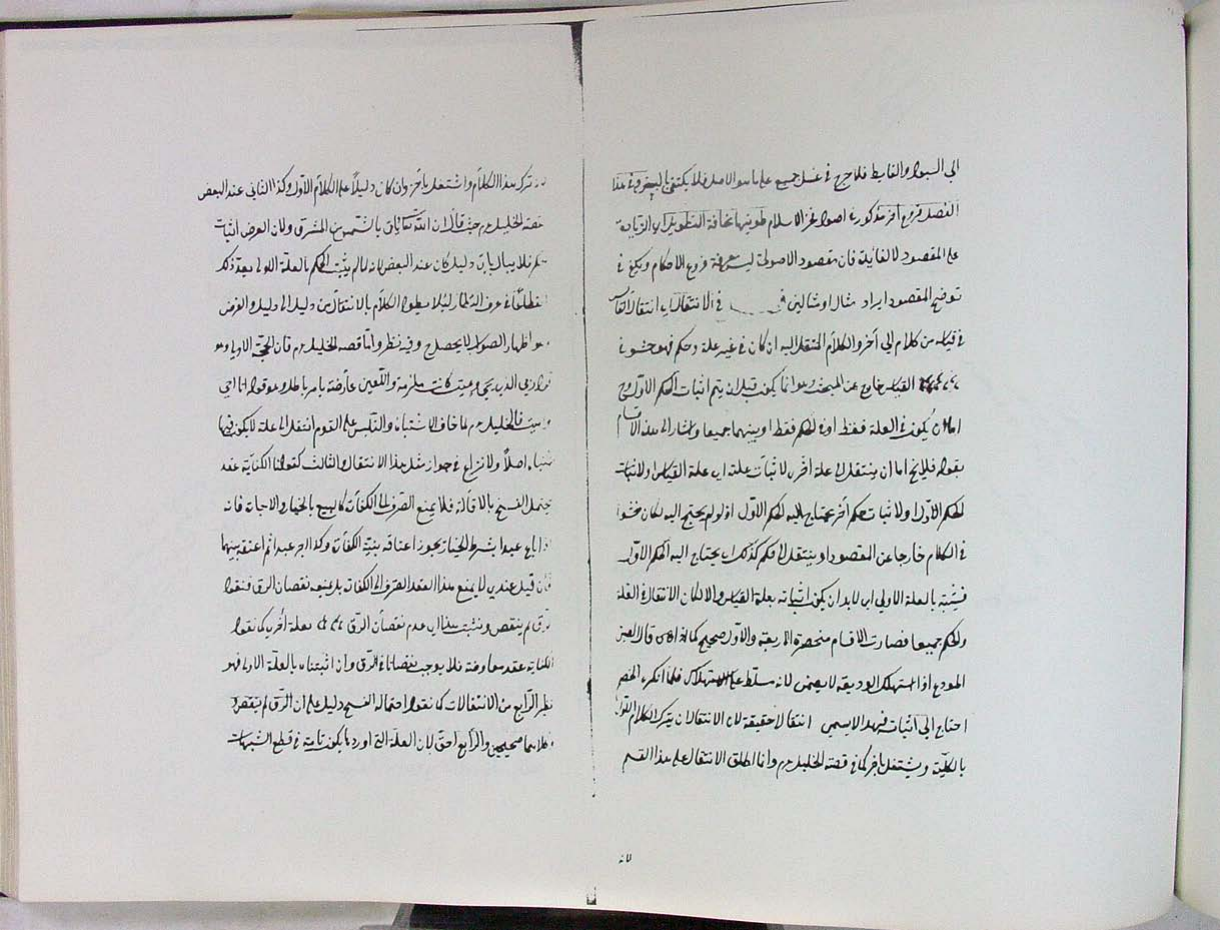 الى السبيل والغايط فلا حرج في غسل جميع على ما هو الاصل فلا يكتفى بالبعض وفي هذا
الفصل فروع اخر مذكورة في اصول فخر الاسلام طويتها مخافة التطويل
على المقصود لا لفائدة فان مقصود الاصولى ليس معرفة فروع الاحكام ويكفي في
توضيح المقصود ايراد مثال او مثالين في الانتقال اي انتقال القايس
في قياسه من كلام الى آخر والكلام المنتقل اليه ان كان في غير علة وحكم فهو حشو في
القياس خارج عن المبحث وهو انما يكون قبل ان يتم اثبات الحكم الاول وح
اما ان يكون في العلة فقط او في الحكم فقط او بينهما جميعا واشار الى هذا الاقسام
بقوله فلا يخ اما ان ينتقل الى علة اخرى لاثبات علته اي علة القياس او لاثبات
الحكم الاول او لاثبات حكم آخر يحتاج اليه الحكم الاول اذ لو لم يحتج اليه لكان حشوا
في الكلام خارجا عن المقصود او ينتقل الى حكم كذلك اي يحتاج اليه الحكم الاول
فيثبته بالعلة الاولى اي لا بد ان يكون اثباته بعلة القياس والا لكان الانتقال في العلة
والحكم جميعا فصارت الاقسام منحصرة في الاربعة والاول صحيح كما اذا قال الصبي
المودع اذا استهلك الوديعة لا يضمن لانه مسلط على الاستهلاك فلما انكره الخصم
احتاج الى اثباته فهذا لا يسمى انتقالا حقيقة لان الانتقال ان يترك الكلام الاول
بالكلية ويشتغل بآخر كما في قصة الخليل عم وانما اطلق الانتقال على هذا القسم
لانه
ترك هذا الكلام واشتغل بآخر وان كان دليلا على الكلام الاول وكذا الثاني عند البعض
لقصة الخليل عم حيث قال ان الله تعالى يأتي بالشمس من المشرق ولان الغرض اثبات
الحكم فلا يبالي باي دليل كان عند البعض لانه لما لم يثبت الحكم بالعلة الاولى يعد ذلك
انقطاعا في عرف النظار لئلا يطول الكلام بالانتقال من دليل الى دليل والغرض
هو اظهار الصواب لا يحصل ح وفيه نظر واما قصة الخليل عم فان الحجة الاولى وهو
قوله ربي الذي يحيي ويميت كانت ملزمة واللعين عارضه بامر باطل وهو قوله انا احيي
واميت فالخليل عم لما خاف الاشتباه والتلبيس على القوم انتقل الى علة لا يكون فيها
اشتباه اصلا ولا نزاع في جواز مثل هذا الانتقال والثالث كقولنا الكتابة عقد
يحتمل الفسخ بالاقالة فلا يمنع الصرف الى الكفارة كالبيع بالخيار والاجارة فانه
اذا باع عبدا بشرط الخيار يجوز اعتاقه بنية الكفارة وكذا اذا اجر عبدا ثم اعتقه بنيتها
فان قيل عندي لا يمنع هذا العقد الصرف الى الكفارة بل يمنعه نقصان الرق فنقول
الرق لم ينقص ونثبت هذا اي عدم نقصان الرق بعلة اخرى كما نقول
الكتابة عقد معاوضة فلا يوجب نقصانا في الرق وان اثبتناه بالعلة الاولى فهو
نظير الرابع من الانتقالات كما نقول احتمال الفسخ دليل على ان الرق لم ينقص و
كلاهما صحيحين والرابع احق لان العلة التي اوردها يكون تامة في قطع الشبهات